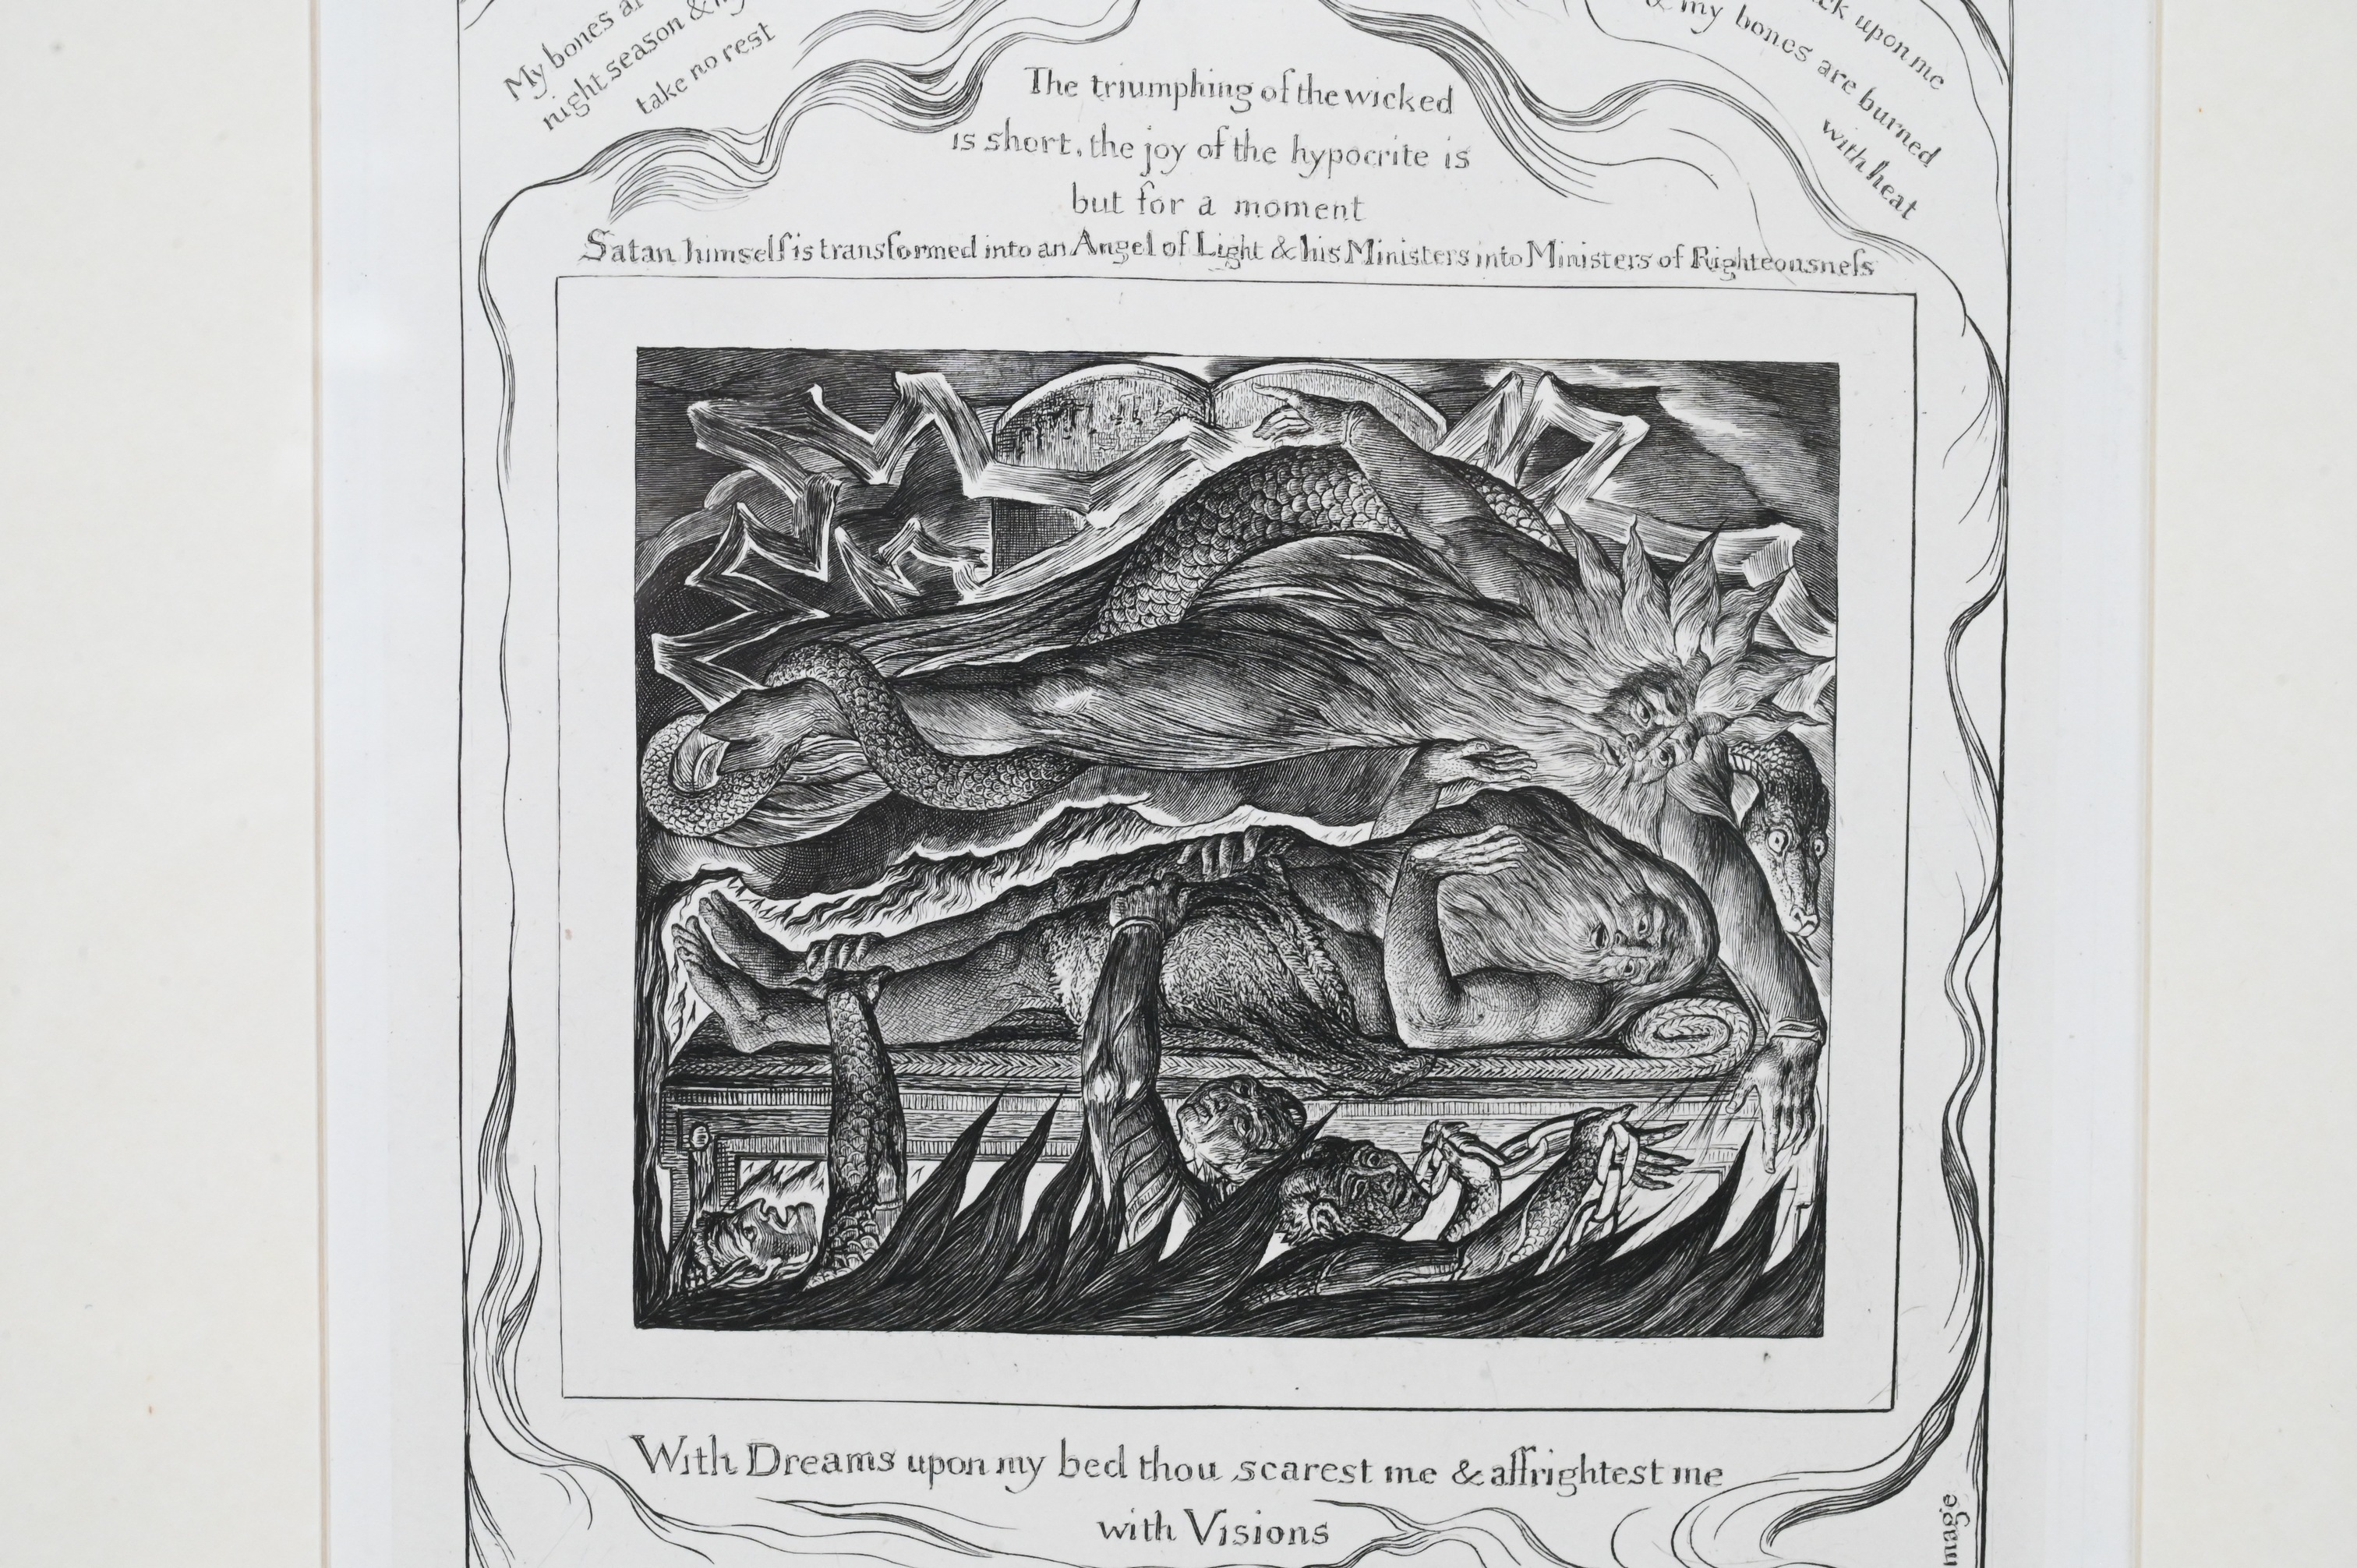 My bones
night season &
take no rest
upon me
& my bones are burned
with heat
The triumphing of the wicked
is short, the joy of the hypocrite is
but for a moment
Satan himself is transformed into an Angel of Light & his Ministers into Ministers of Righteousneſs
With Dreams upon my bed thou scarest me & affrightest me
with Visions